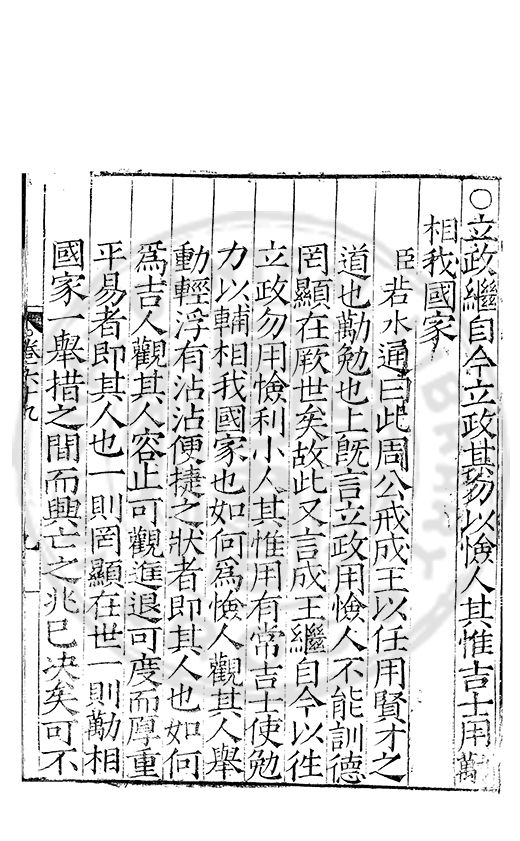 ○立政繼自今立政其勿以憸人其惟吉士用勱
相我國家
臣若水通曰此周公戒成王以任用賢才之
道也勱勉也上旣言立政用憸人不能訓德
罔顯在厥世矣故此又言成王繼自今以徃
立政勿用憸利小人其惟用有常吉士使勉
力以輔相我國家也如何爲憸人觀其人舉
動輕浮有沾沾便捷之狀者即其人也如何
爲吉人觀其人容止可觀進退可度而厚重
平易者即其人也一則罔顯在世一則勱相
國家一舉措之間而興亡之兆已决矣可不
卷六十九
九